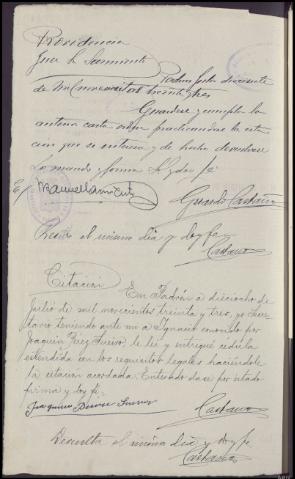 Providencia
Juez Sr. Sarmiento
Padrón Julio dieciseis
de mil novecientos treinta y tres
Guardese y cumpla la
anterior carta orden practicandose la cita
cion que se interesa y de hecho devuelvase
Lo mandó y firma S.Sª doy fé
E/ Manuel Sarmiento
Gerardo Castaño
Recibo el mismo dia y doy fé
Castaño
Citacion
En Padrón a dieciocho de
Julio de mil novecientos treinta y tres, yo Secre
tario teniendo ante mi a conocido por
Joaquin Perez Sueiro le lei y entregué cédula
extendida con los requisitos legales haciéndole
la citacion acordada. Enterado dase por citado
firma y doy fé.
Joaquin Perez Sueiro
Castaño
Devuelta el mismo dia y doy fé
Castaño